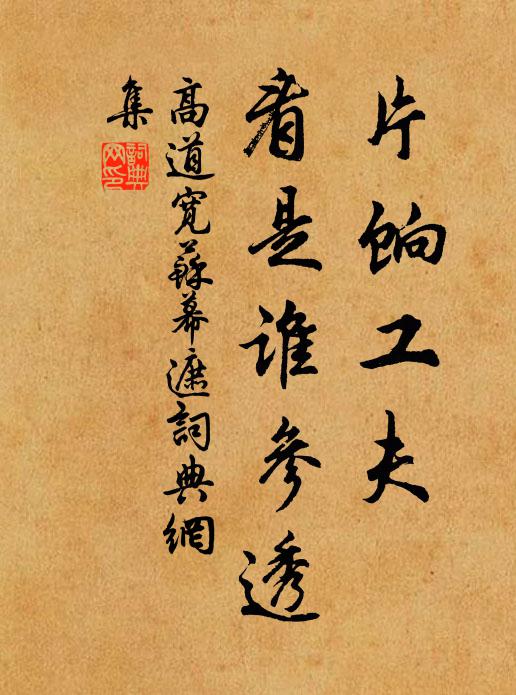 片餉工夫
看是誰參透
高道寬蘇幕遮詞典網
集
詞典
网印